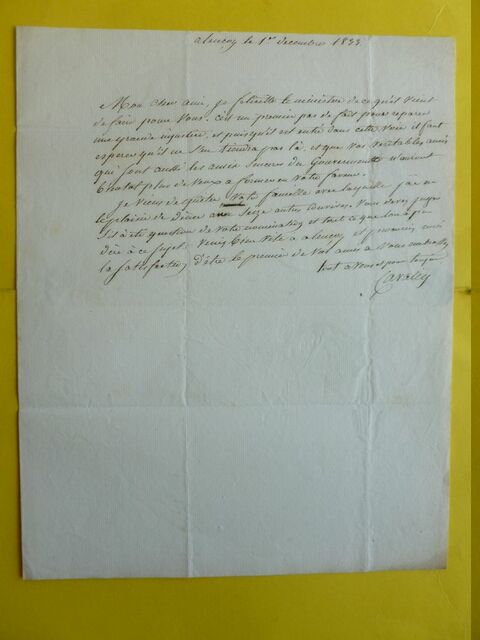 alençon le 1er decembre 1833.
Mon cher ami, je felicite le ministre de ce qu'il vient
de faire pour vous. c'est un premier pas de fait pour reparer
une grande injustice, et puisqu'il est entré dans cette voie il faut
esperer qu'il ne s'en tiendra pas là, et que vos veritables amis
qui sont aussi les amis sinceres du Gouvernement n'auront
bientot plus de vœux a former en votre faveur.
je viens de quitter votre famille avec laquelle j'ai eu
le plaisir de diner avec seize autres convives. vous devez juger
s'il a été question de votre nomination et tout ce que l'on a pu
dire à ce sujet. venez bien vite a alençon et procurez moi
la satisfaction d'être le premier de vos amis a vous embrasser
tout a vous et pour toujours